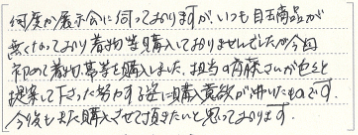 何度か展示会に伺っておりますが、いつも目玉商品が
無くなっており着物等購入しておりませんでしたが今回
初めて着物、帯等を購入しました。担当の斉藤さんが色々と
提案して下さった努力する姿に購入意欲が沸いたものです。
今後もまた購入させて頂きたいと思っております。